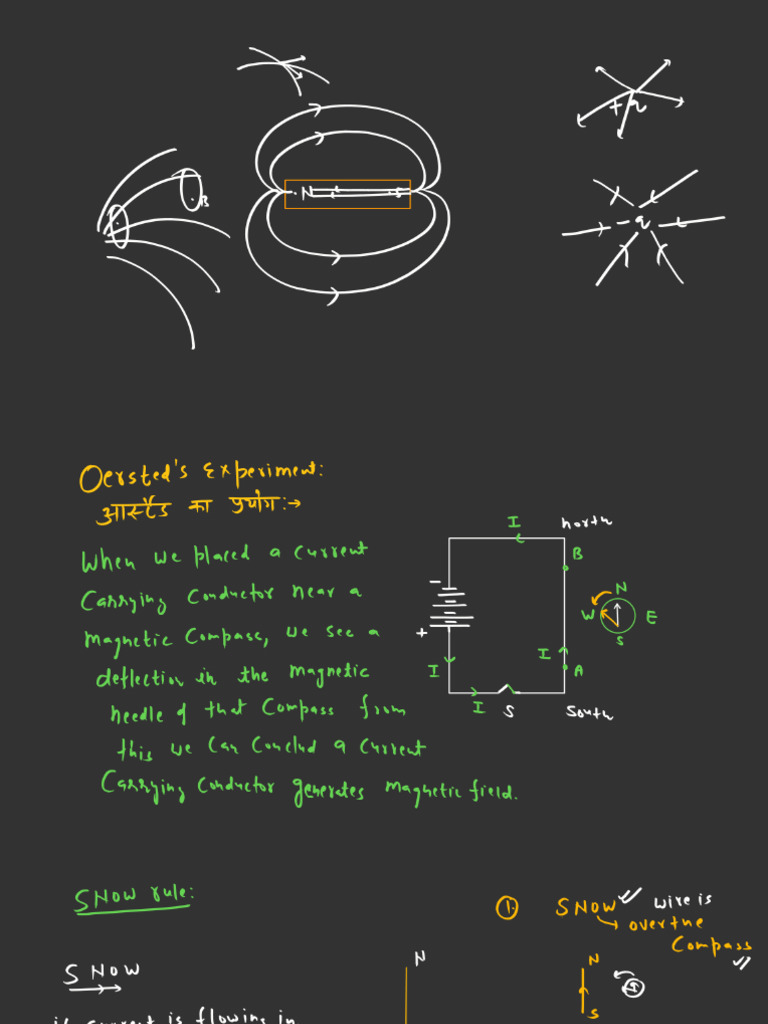 +q
B
N
S
-q
Oersted's Experiment:
आर्स्टेड का प्रयोग:→
When we placed a current
Carrying Conductor near a
magnetic Compass, we see a
deflection in the magnetic
needle of that Compass from
this we can conclud a current
Carrying conductor generates magnetic field.
I
north
B
-
N
W
E
S
+
I
I
A
I
S
South
SNOW rule:
1.
SNOW
wire is
over the
Compass
SNOW
N
N
S
if current is flowing in